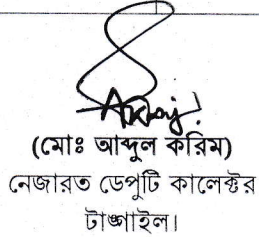 (মোঃ আব্দুল করিম)
নেজারত ডেপুটি কালেক্টর
টাঙ্গাইল।